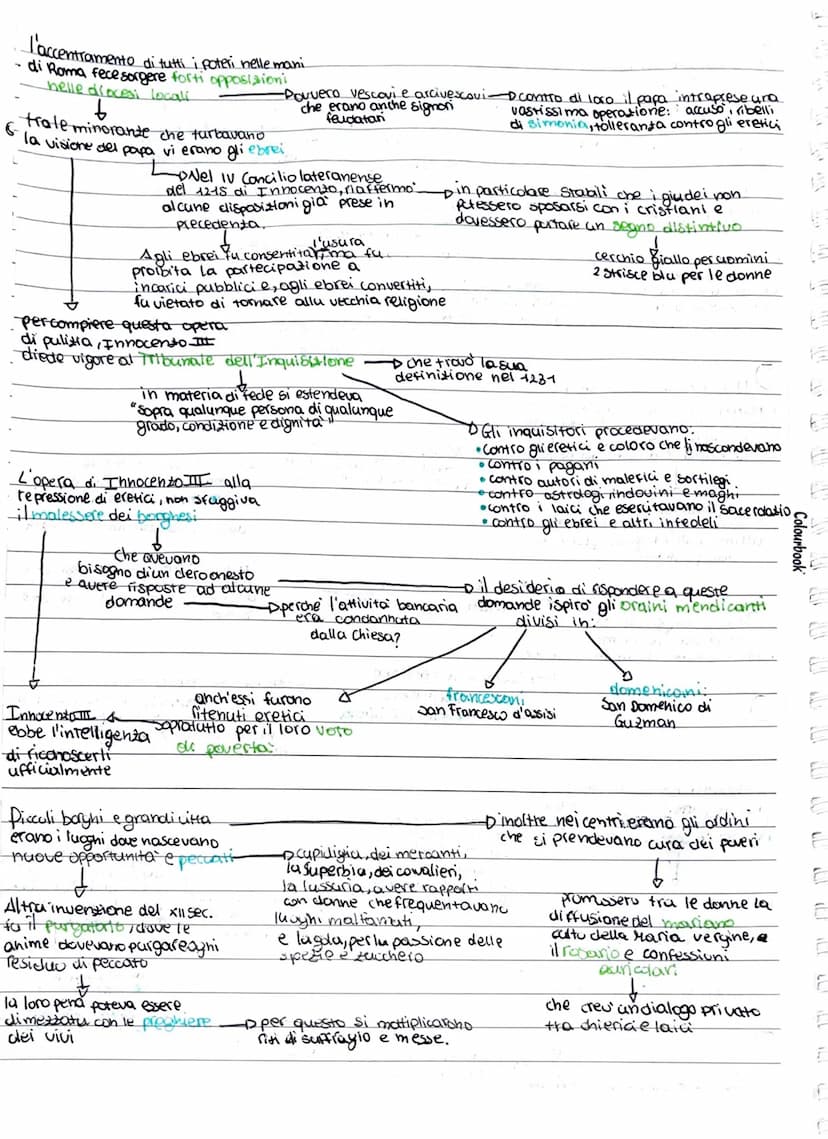 l'accentramento di tutti i poteri nelle mani
di Roma fece sorgere forti opposizioni
nelle diocesi locali
ovvero vescovi e arcivescovi
che erano anche signori
feudatari
contro di loro il papa intraprese una
vastissima operazione: accusò i ribelli
di simonia, tolleranza contro gli eretici
tra le minoranze che turbavano
la visione del papa vi erano gli ebrei
Nel IV Concilio lateranense
del 1215 di Innocenzo, riaffermò
alcune disposizioni già prese in
precedenza.
in particolare stabilì che i giudei non
potessero sposarsi con i cristiani e
dovessero portare un segno distintivo
cerchio giallo per uomini
2 strisce blu per le donne
Agli ebrei fu consentita l'usura, ma fu
proibita la partecipazione a
incarici pubblici e, agli ebrei convertiti,
fu vietato di tornare alla vecchia religione
per compiere questa opera
di pulizia, Innocenzo III
diede vigore al Tribunale dell'Inquisizione
che trovò la sua
definizione nel 1231
in materia di fede si estendeva
"sopra qualunque persona di qualunque
grado, condizione e dignità"
Gli inquisitori procedevano:
• contro gli eretici e coloro che li nascondevano
• contro i pagani
• contro autori di malefici e sortilegi
• contro astrologi, indovini e maghi
• contro i laici che esercitavano il sacerdozio
• contro gli ebrei e altri infedeli
Colourbook
L'opera di Innocenzo III alla
repressione di eretici, non sfuggiva
il malessere dei borghesi
Che avevano
bisogno di un clero onesto
e avere risposte ad alcune
domande
perché l'attività bancaria
era condannata
dalla Chiesa?
il desiderio di rispondere a queste
domande ispirò gli ordini mendicanti
divisi in:
francescani,
San Francesco d'assisi
domenicani:
San Domenico di
Guzman
anch'essi furono
ritenuti eretici
sopratutto per il loro voto
di povertà.
Innocenzo III
ebbe l'intelligenza
di riconoscerli
ufficialmente
Piccoli borghi e grandi citta
erano i luoghi dove nascevano
nuove opportunità e peccati
cupidigia, dei mercanti,
la superbia, dei cavalieri,
la lussuria, avere rapporti
con donne che frequentavano
luoghi malfamati,
e la gola, per la passione delle
spezie e zucchero
inoltre nei centri erano gli ordini
che si prendevano cura dei poveri
promossero tra le donne la
diffusione del mariano
culto della Maria vergine, e
il rosario e confessioni
auricolari
che creò un dialogo privato
tra chierici e laici
Altra invenzione del XII sec.
fu il purgatorio, dove le
anime dovevano purgare ogni
residuo di peccato
la loro pena poteva essere
dimezzata con le preghiere
dei vivi
per questo si moltiplicarono
riti di suffragio e messe.